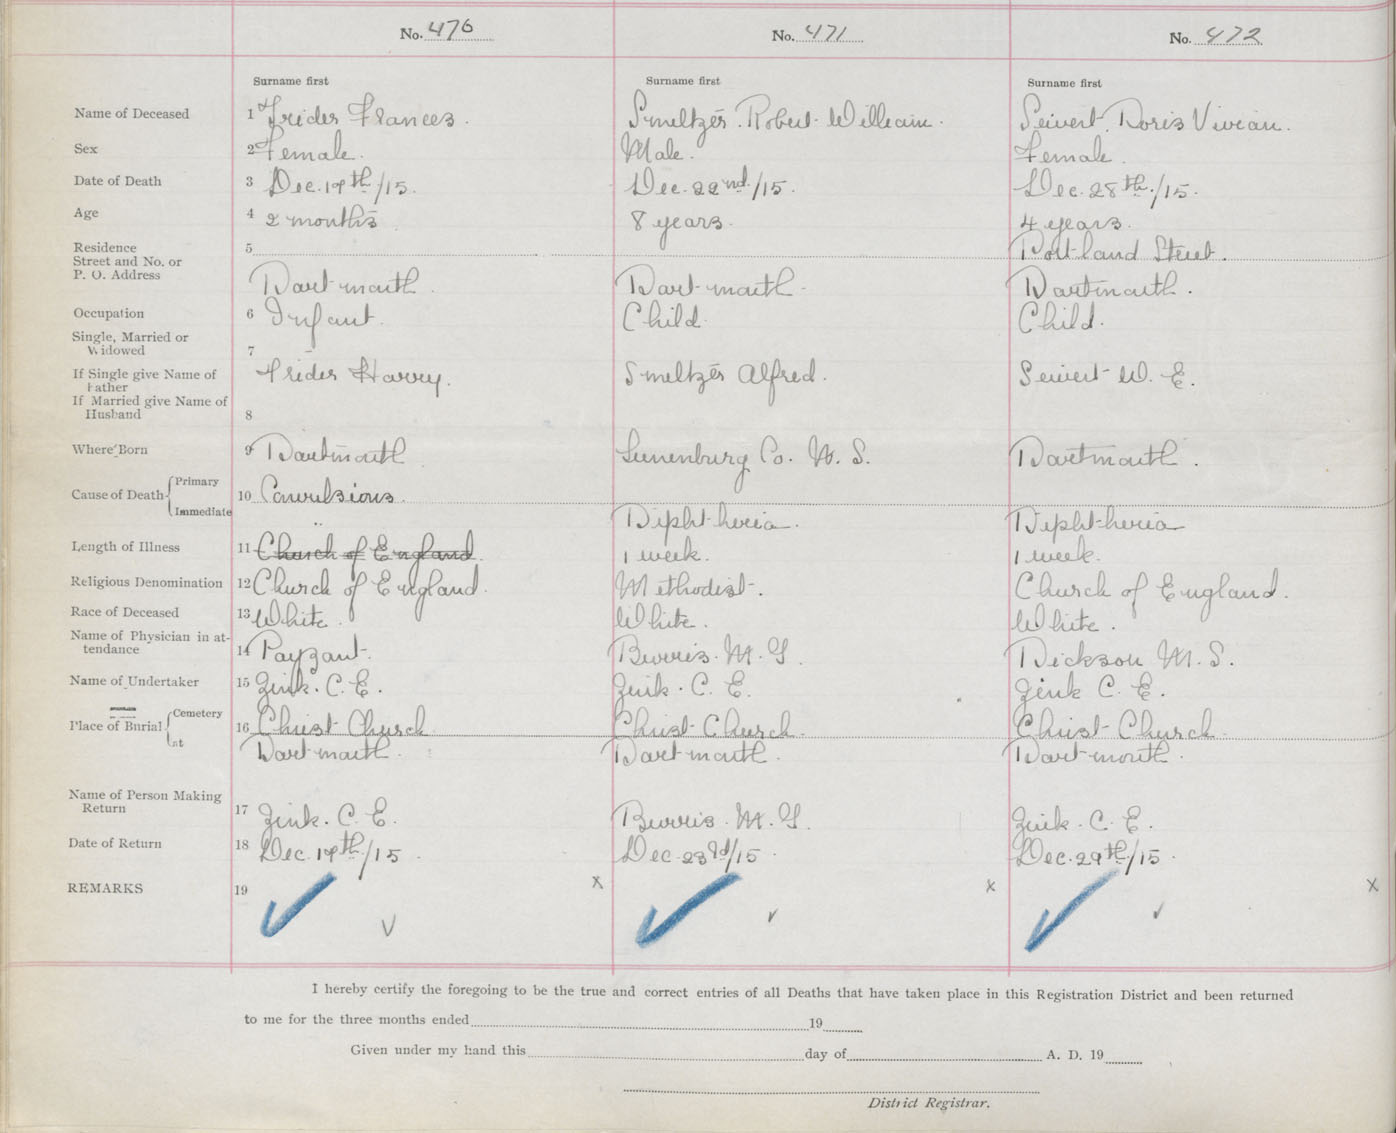 No. 470 No. 471 No. 472
Surname first Surname first Surname first
Name of Deceased 1 Frider Frances. Smeltzer. Robert William. Seivert. Doris Vivian.
Sex 2 Female. Male. Female.
Date of Death 3 Dec. 17th/15. Dec. 22nd/15. Dec. 28th/15.
Age 4 2 months 8 years. 4 years.
Residence 5 Portland Street.
Street and No. or
P. O. Address Dartmouth. Dartmouth. Dartmouth.
Occupation 6 Infant. Child. Child.
Single, Married or
Widowed 7
If Single give Name of Frider Harry. Smeltzer Alfred. Seivert W. E.
Father
If Married give Name of
Husband 8
Where Born 9 Dartmouth Lunenburg Co. N. S. Dartmouth.
Primary
Cause of Death 10 Convulsions.
Immediate Diphtheria. Diphtheria
Length of Illness 11 Church of England. 1 week. 1 week.
Religious Denomination 12 Church of England. Methodist. Church of England.
Race of Deceased 13 White. White. White.
Name of Physician in at-
tendance 14 Payzant. Burris. M. G. Dickson M. S.
Name of Undertaker 15 Zink. C. E. Zink. C. E. Zink C. E.
Cemetery
Place of Burial 16 Christ Church Christ Church Christ Church.
at Dartmouth. Dartmouth. Dartmouth.
Name of Person Making
Return 17 Zink. C. E. Burris. M. G. Zink. C. E.
Date of Return 18 Dec. 17th/15 Dec. 23rd/15. Dec. 29th/15.
REMARKS 19 x x x
I hereby certify the foregoing to be the true and correct entries of all Deaths that have taken place in this Registration District and been returned
to me for the three months ended 19
Given under my hand this day of A. D. 19
District Registrar.